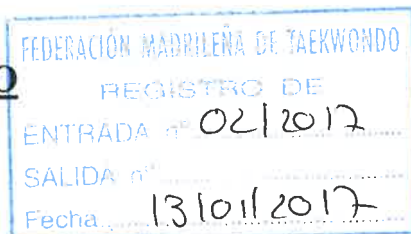 FEDERACIÓN MADRILEÑA DE TAEKWONDO
REGISTRO DE
ENTRADA nº 02/2017
SALIDA nº
Fecha 13/01/2017